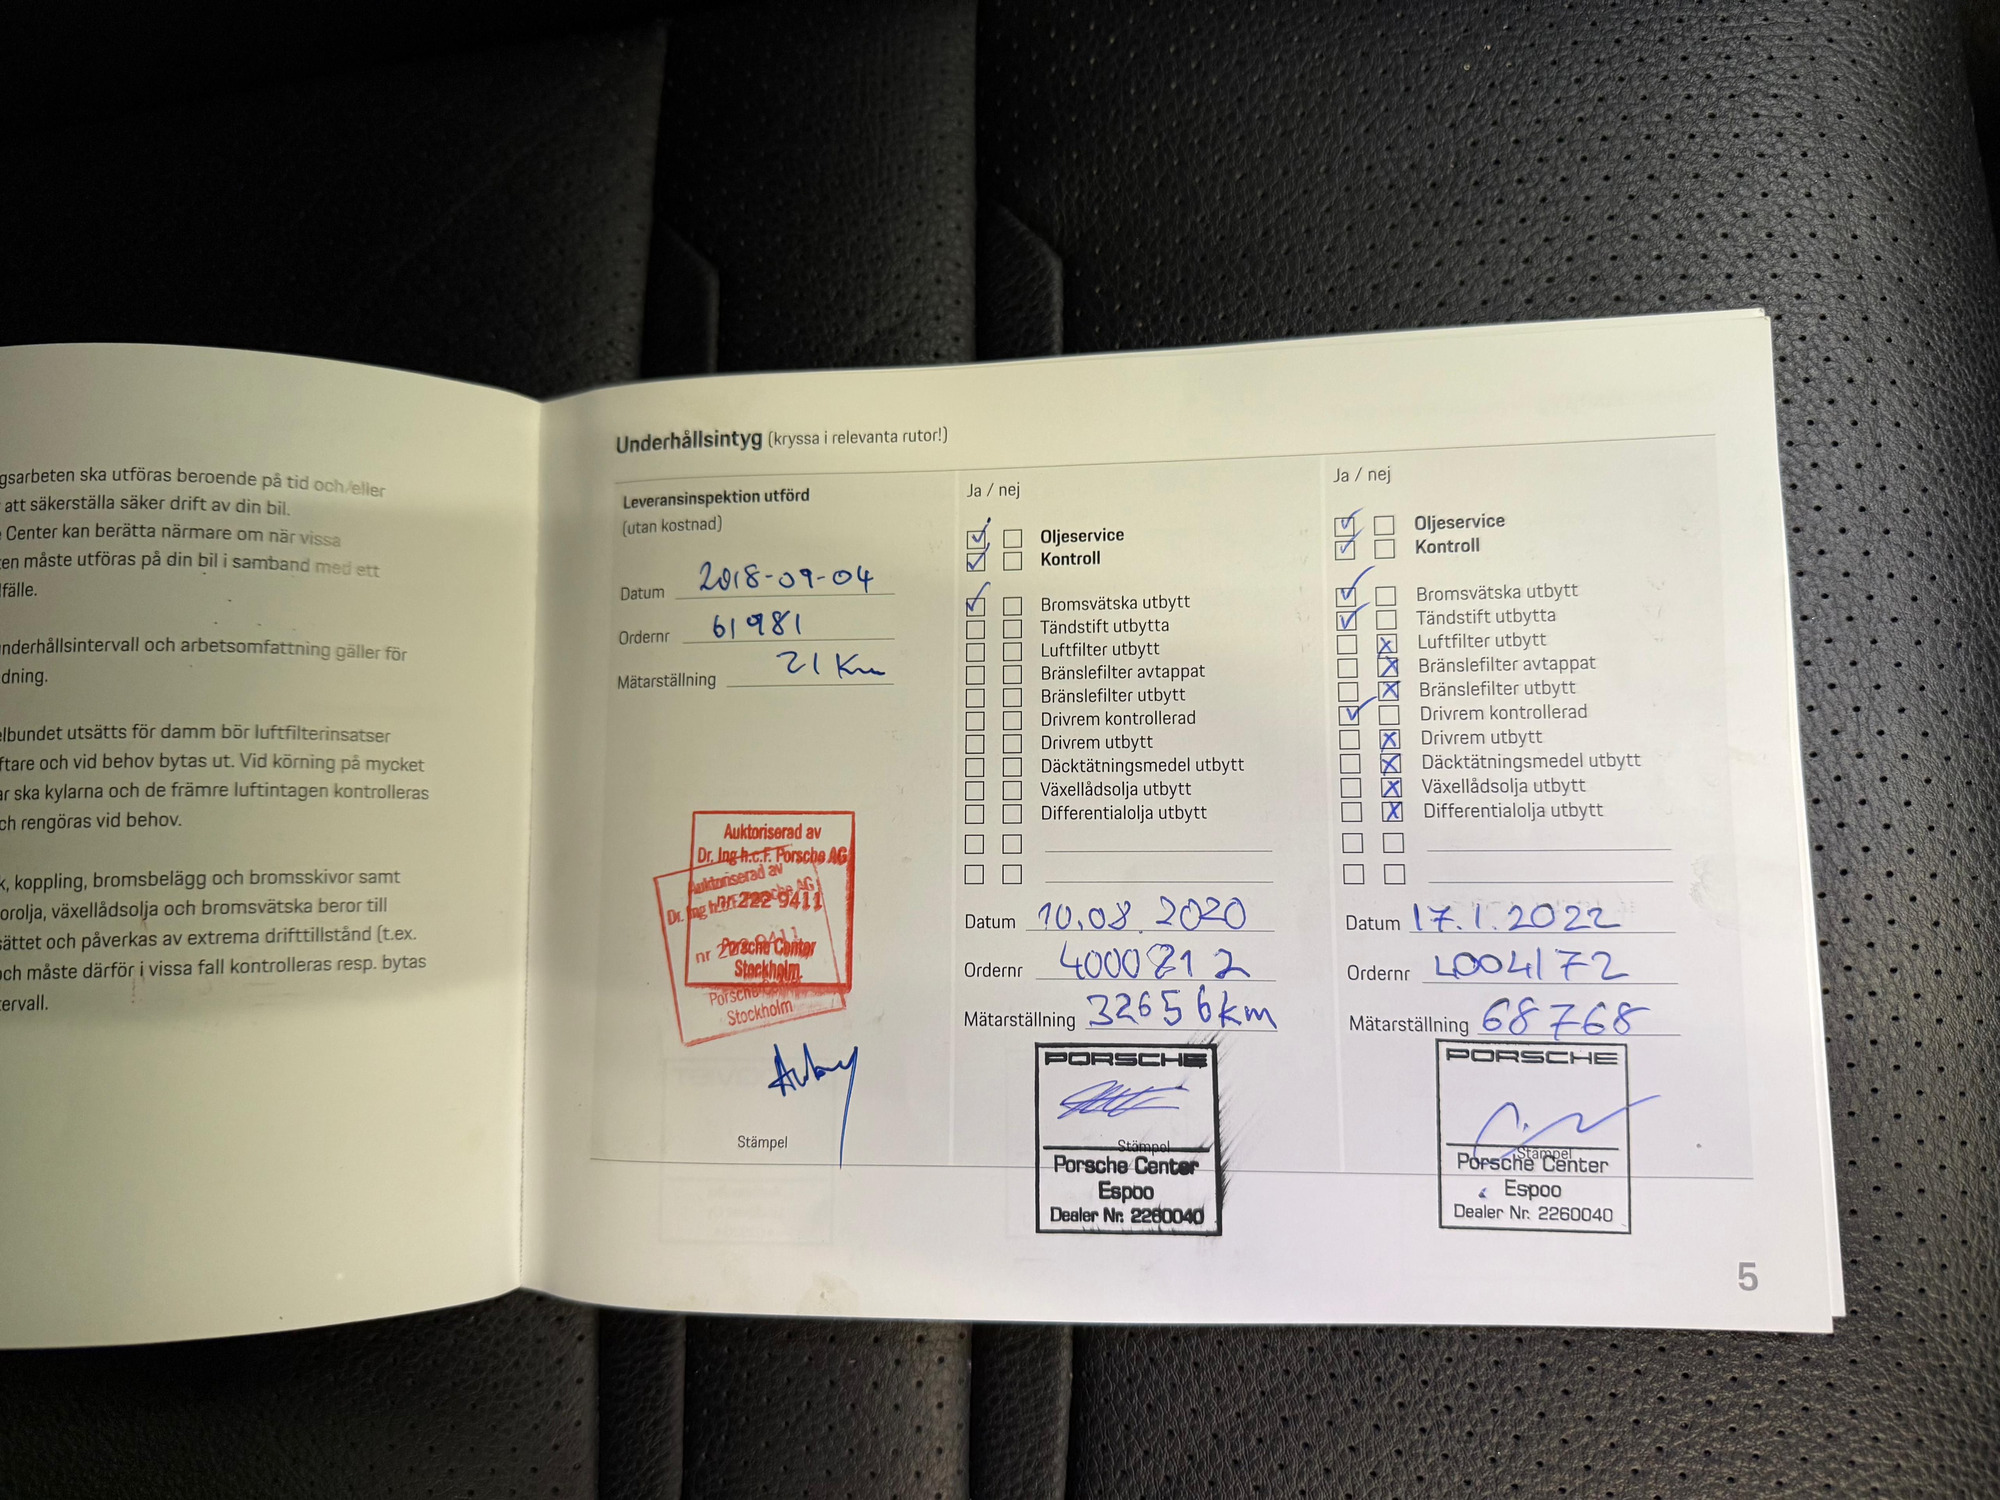 gsarbeten ska utföras beroende på tid och/eller
att säkerställa säker drift av din bil.
Center kan berätta närmare om när vissa
en måste utföras på din bil i samband med ett
fälle.
nderhållsintervall och arbetsomfattning gäller för
dning.
elbundet utsätts för damm bör luftfilterinsatser
ftare och vid behov bytas ut. Vid körning på mycket
ar ska kylarna och de främre luftintagen kontrolleras
ch rengöras vid behov.
k, koppling, bromsbelägg och bromsskivor samt
orolja, växellådsolja och bromsvätska beror till
sättet och påverkas av extrema drifttillstånd (t.ex.
och måste därför i vissa fall kontrolleras resp. bytas
ervall.
Underhållsintyg (kryssa i relevanta rutor!)
Leveransinspektion utförd
(utan kostnad)
Datum 2018-09-04
Ordernr 61981
Mätarställning 21 Km
Auktoriserad av
Dr. Ing h.c.F. Porsche AG
nr 222 9411
Porsche Center
Stockholm
Auktoriserad av
Dr. Ing h.c.F. Porsche AG
nr 222 9411
Porsche Center
Stockholm
Stämpel
Ja / nej
Oljeservice
Kontroll
Bromsvätska utbytt
Tändstift utbytta
Luftfilter utbytt
Bränslefilter avtappat
Bränslefilter utbytt
Drivrem kontrollerad
Drivrem utbytt
Däcktätningsmedel utbytt
Växellådsolja utbytt
Differentialolja utbytt
Datum 10.08.2020
Ordernr 4000212
Mätarställning 32656km
PORSCHE
Stämpel
Porsche Center
Espoo
Dealer Nr. 2260040
Ja / nej
Oljeservice
Kontroll
Bromsvätska utbytt
Tändstift utbytta
Luftfilter utbytt
Bränslefilter avtappat
Bränslefilter utbytt
Drivrem kontrollerad
Drivrem utbytt
Däcktätningsmedel utbytt
Växellådsolja utbytt
Differentialolja utbytt
Datum 17.1.2022
Ordernr 4004172
Mätarställning 68768
PORSCHE
Stämpel
Porsche Center
Espoo
Dealer Nr. 2260040
5